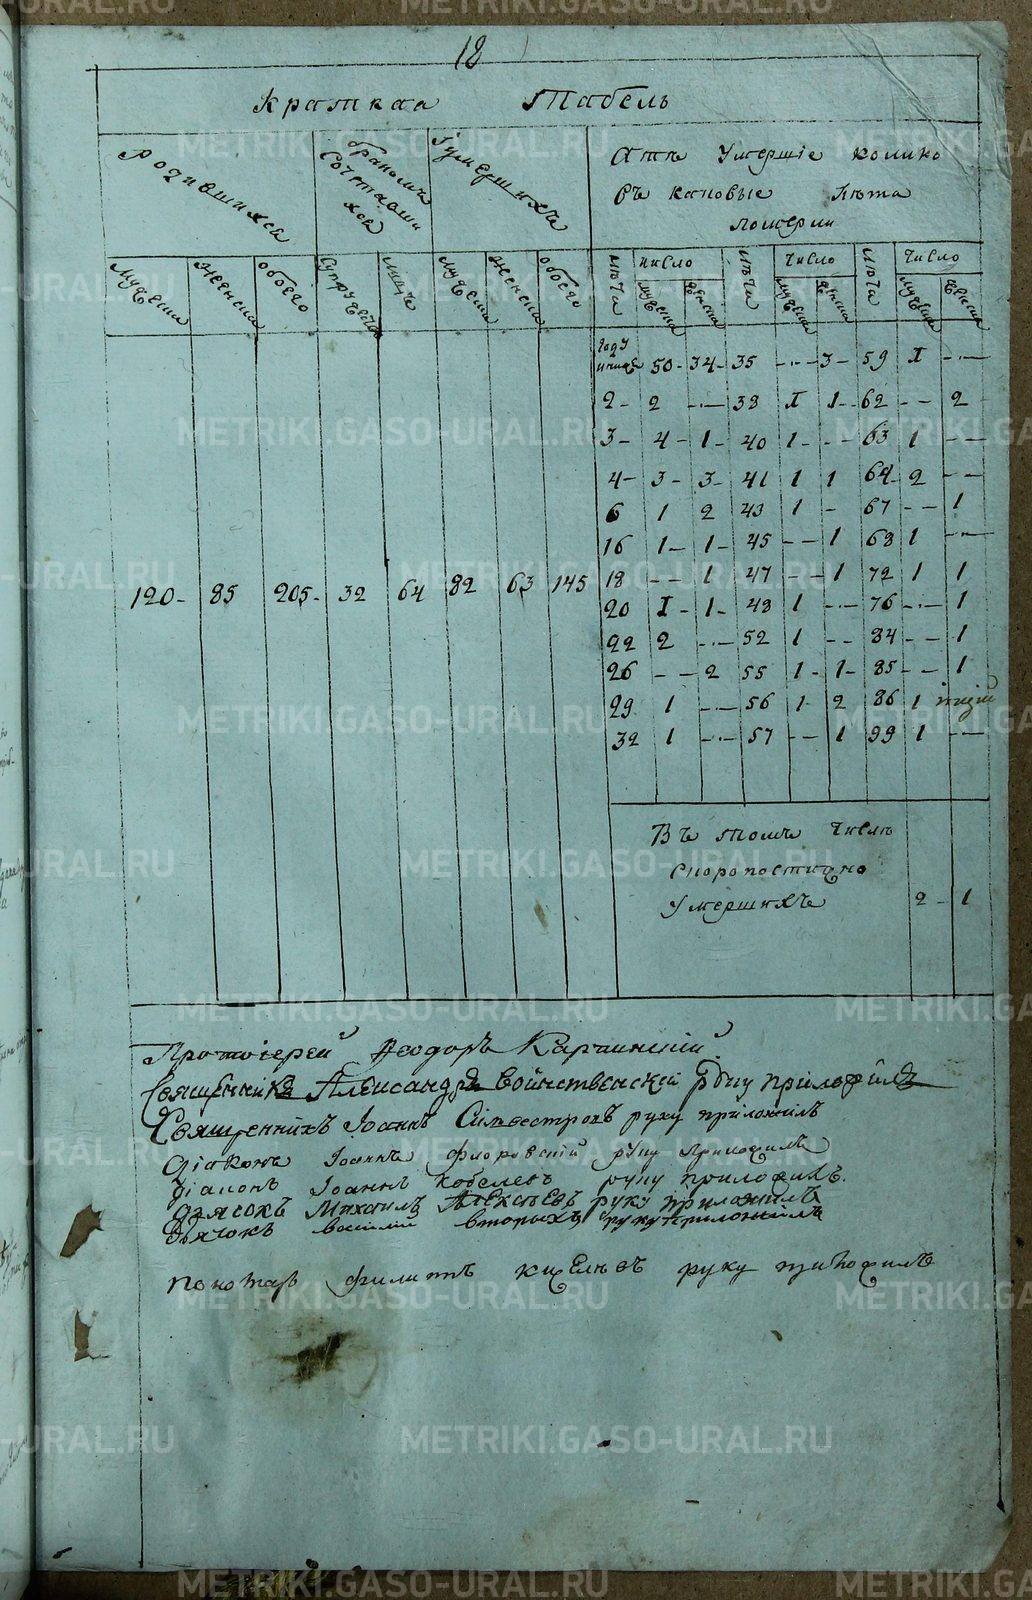 18
Краткая Табель
Родившихся
Бракомъ Сочетавши хся
Умершихъ
Умершіе колико
въ каковые Лѣта
померли
мужеска женска обоего Супружествъ лицъ мужеска женска обоего лѣта число лѣта число лѣта число
мужеска женска мужеска женска мужеска женска
году 50 - 34 - 35 - · - 3 - 59 I - · -
2 - 2 - · - 38 I 1 - 62 - - 2
3 - 4 - 1 - 40 1 - - - 63 1 - -
4 - 3 - 3 - 41 1 1 64 - 2 - -
6 1 2 43 1 - 67 - - 1
16 1 - 1 - 45 - - 1 68 1 - · -
18 - - 1 47 - - 1 72 1 1
120 - 85 205 - 32 64 82 63 145
20 I - 1 - 48 1 - · - 76 - · - 1
22 2 - · - 52 1 - - 84 - - 1
26 - - 2 55 1 - 1 - 85 - - 1
29 1 - · - 56 1 - 2 86 1
32 1 - · - 57 - - 1 99 1 - -
Въ томъ числѣ
скоропостижно
умершихъ 2 - 1
Протоіерей Ѳеодоръ Карпинскій
Священникъ Александръ Воинственскій руку приложилъ
Священникъ Іоаннъ Сильвестровъ руку приложилъ
Діаконъ Іоаннъ Флоровскій руку приложилъ
Діаконъ Іоаннъ Кобелевъ руку приложилъ.
дьячокъ Михаилъ Алексѣевъ руку приложилъ
дьячокъ василій вторыхъ руку приложилъ
пономарь филиппъ киселевъ руку приложилъ
METRIKI.GASO-URAL.RU